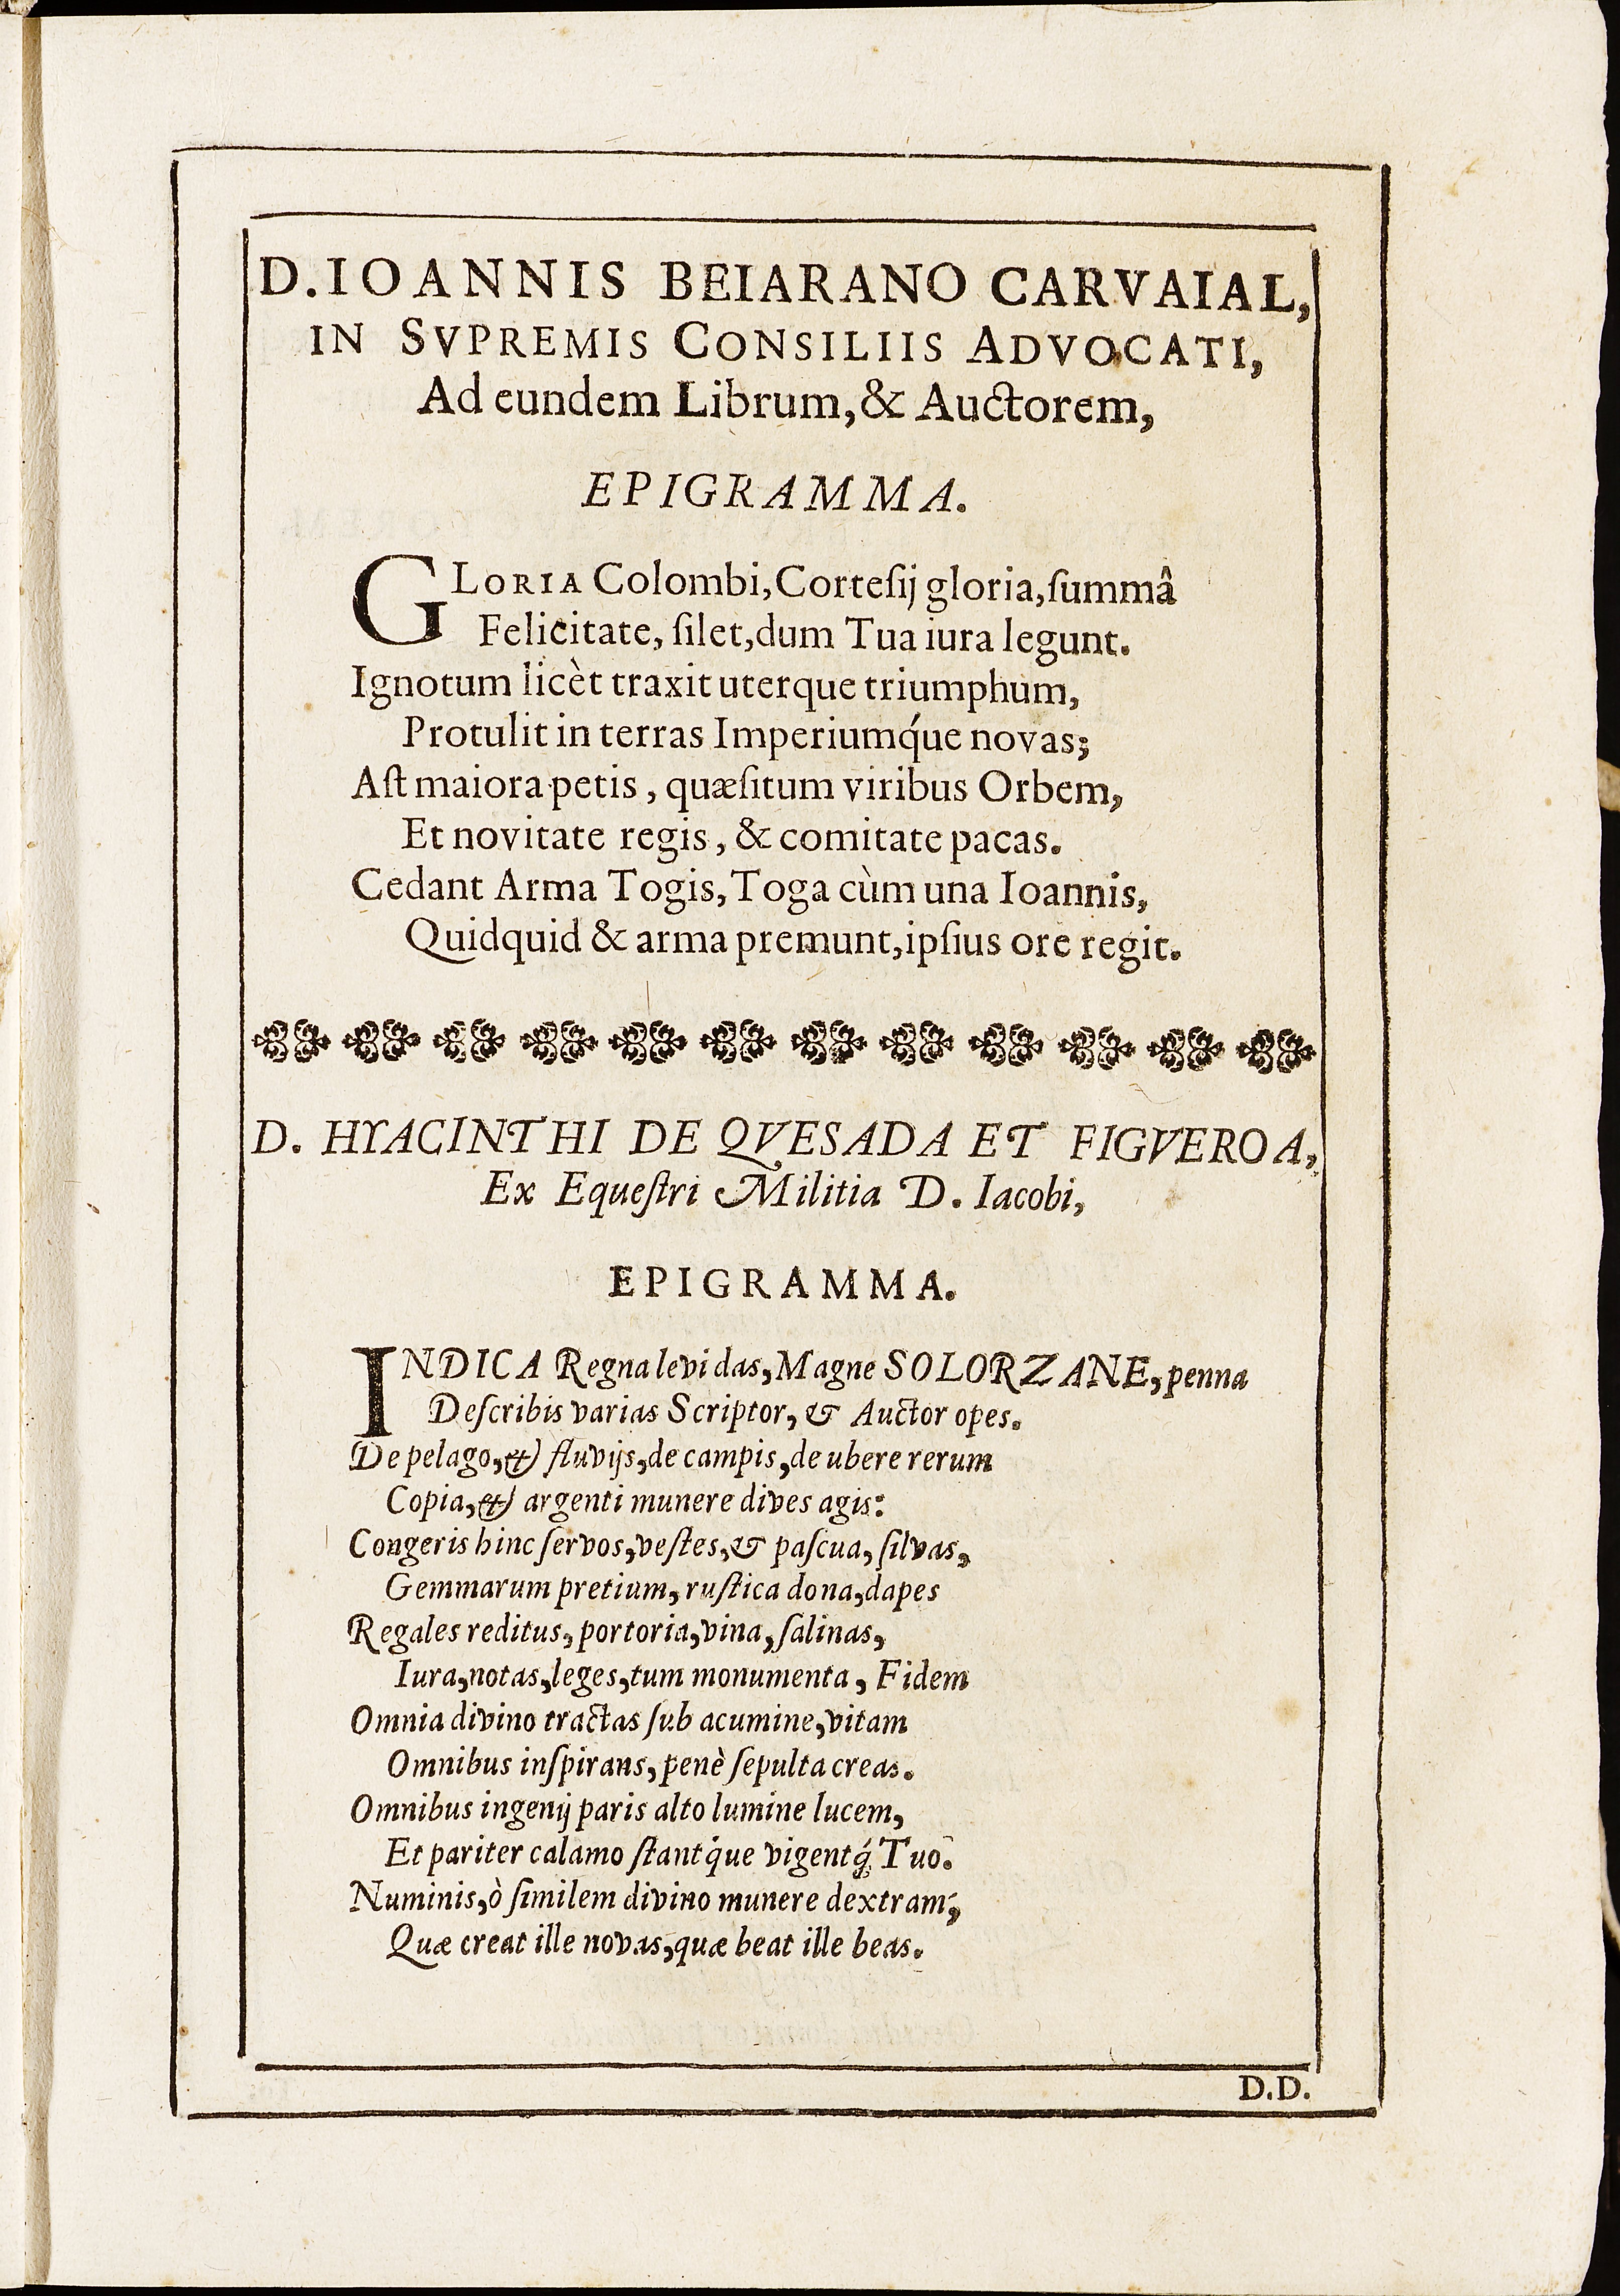 D. IOANNIS BEIARANO CARVAIAL,
IN SVPREMIS CONSILIIS ADVOCATI,
Ad eundem Librum, & Auctorem,
EPIGRAMMA.
GLORIA Colombi, Corteſij gloria, ſummâ
Felicitate, ſilet, dum Tua iura legunt.
Ignotum licèt traxit uterque triumphum,
Protulit in terras Imperiumq́ue novas;
Aſt maiora petis, quæſitum viribus Orbem,
Et novitate regis, & comitate pacas.
Cedant Arma Togis, Toga cùm una Ioannis,
Quidquid & arma premunt, ipſius ore regit.
D. HYACINTHI DE QVESADA ET FIGVEROA,
Ex Equeſtri Militia D. Iacobi,
EPIGRAMMA.
INDICA Regna levi das, Magne SOLORZANE, penna
Deſcribis varias Scriptor, & Auctor opes.
De pelago, & fluvijs, de campis, de ubere rerum
Copia, & argenti munere dives agis:
Congeris hinc ſervos, veſtes, & paſcua, ſilvas,
Gemmarum pretium, ruſtica dona, dapes
Regales reditus, portoria, vina, ſalinas,
Iura, notas, leges, tum monumenta, Fidem
Omnia divino tractas ſub acumine, vitam
Omnibus inſpirans, penè ſepulta creas.
Omnibus ingenij paris alto lumine lucem,
Et pariter calamo ſtantq́ue vigentq́; Tuo.
Numinis, ò ſimilem divino munere dextram,
Quæ creat ille novas, quæ beat ille beas.
D.D.